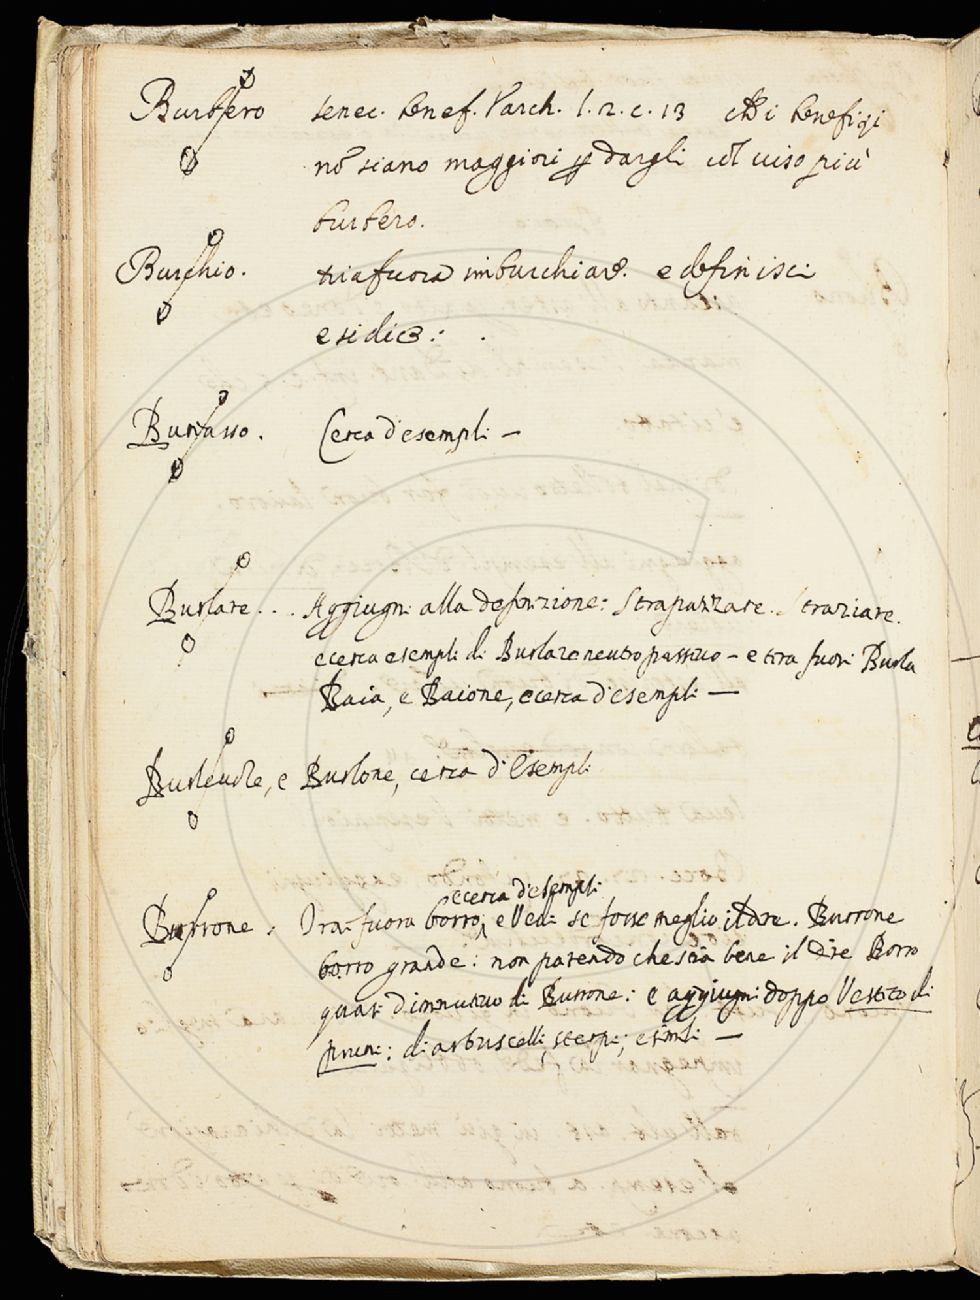 Burbero senec. benef. Varch. l. 2. c. 13 ch i benefizi
nō siano maggiori p dargli col viso più
burbero.
Burchio. tira fuora imburchiare. e definisci
e si dice:
Burbasso. Cerca d'esempli —
Burlare... Aggiugni alla definizione: Strapazzare. Straziare.
e cerca esempli di Burlare neutro passivo — e tira fuori Burla
Baia, e Baione, e cerca d'esempli —
Burlevole, e Burlone, cerca d'Esempli
e cerca d'esempli
Burrone. Tra fuora borro, e Vedi se fosse meglio il dire. Burrone
borro grande: non parendo che stia bene il dire Borro
quasi diminutivo di Burrone: e aggiugni doppo Vestito di
pruni: di arbuscelli, sterpi, e simili —